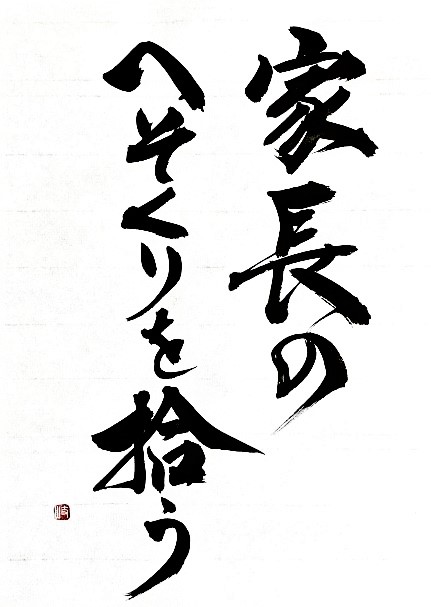 家長の
へそくりを拾う